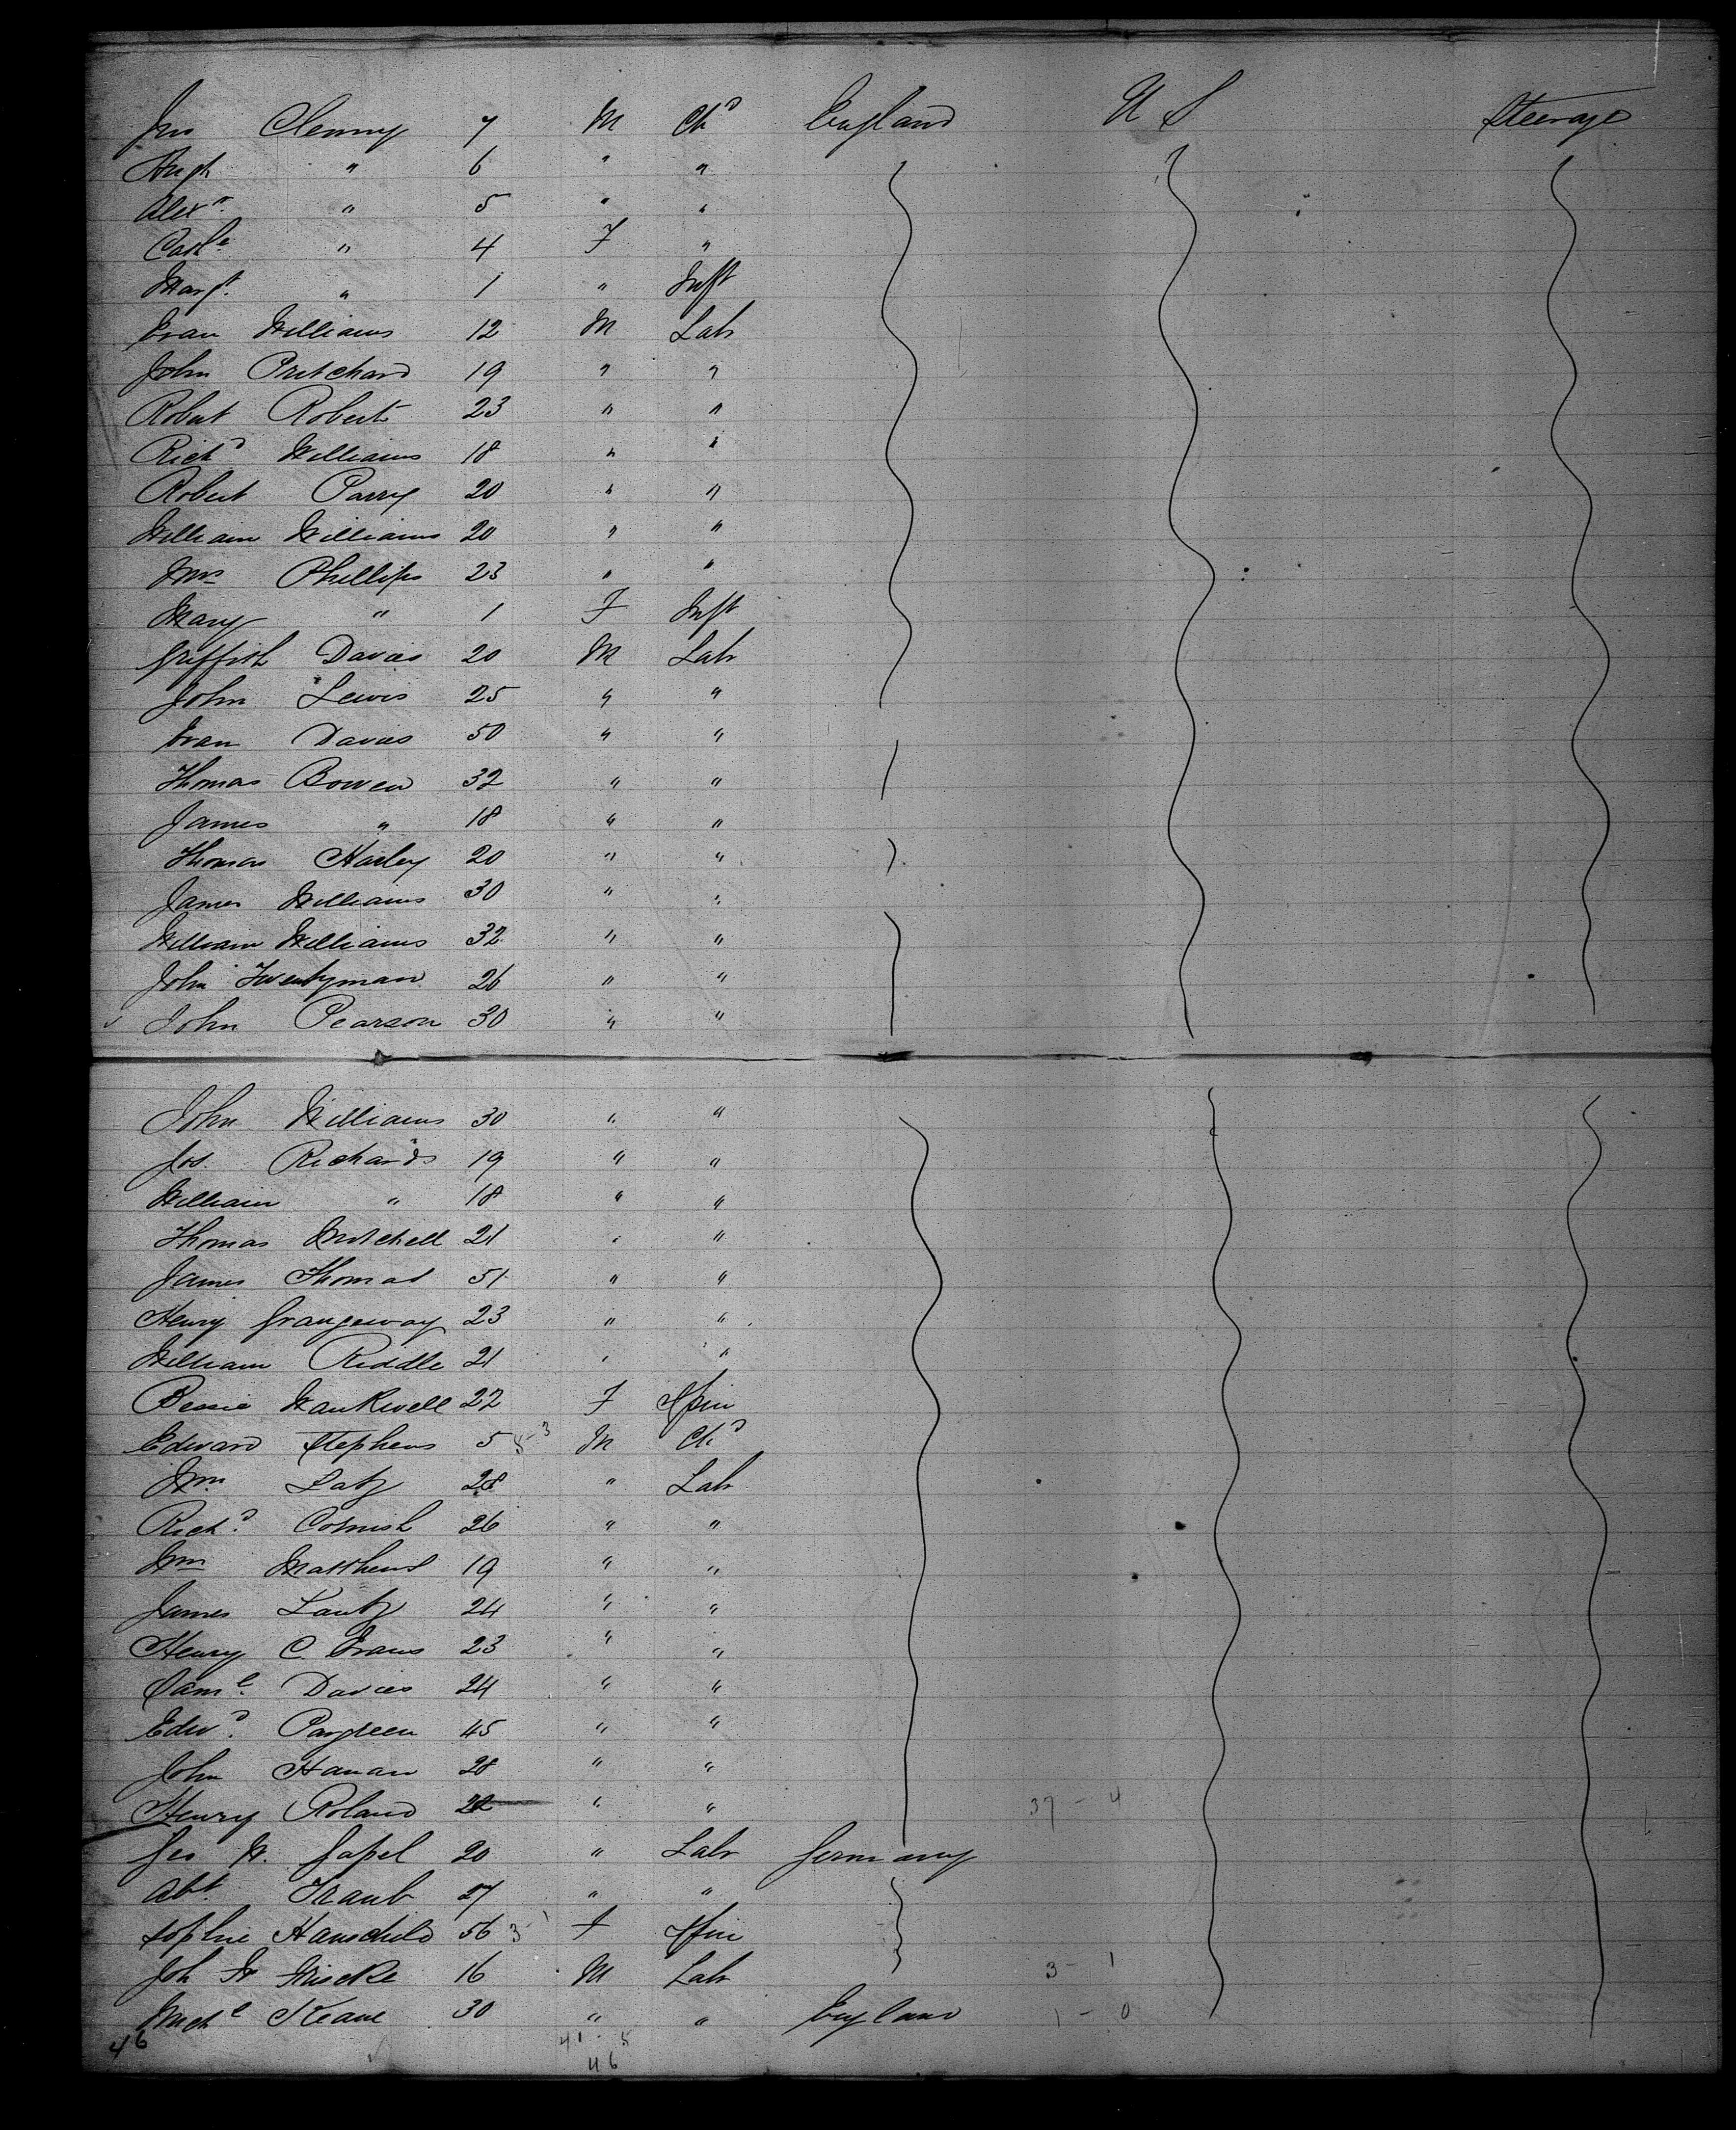 Jno Clenny 7 M Chd England U S Steerage
Hugh " 6 " "
Alexr " 5 " "
Cathe " 4 F "
Margt " 1 " Inft
Evan Williams 12 M Labr
John Pritchard 19 " "
Robert Roberts 23 " "
Richd Williams 18 " "
Robert Parry 20 " "
William Williams 20 " "
Wm Phillips 23 " "
Mary " 1 F Inft
Griffith Davies 20 M Labr
John Lewis 25 " "
Evan Davies 50 " "
Thomas Bowen 32 " "
James " 18 " "
Thomas Harley 20 " "
James Williams 30 " "
William Williams 32 " "
John Twentyman 26 " "
John Pearson 30 " "
John Williams 30 " "
Jos. Richards 19 " "
William " 18 " "
Thomas Mitchell 21 " "
James Thomas 51 " "
Henry Grangeway 23 " "
William Riddle 21 " "
Bessie Wankwell 22 F Spin
Edward Stephens 5 M Chd
Wm Laty 28 " Labr
Richd Cornish 26 " "
Wm Matthews 19 " "
James Lanty 24 " "
Henry C. Evans 23 " "
Saml Davies 24 " "
Edwd Pargreen 45 " "
John Hanan 28 " "
Henry Roland 22 " " 37 - 4
Geo W. Gapel 20 " Labr Germany
Abt Traub 27 " "
Sophie Hanschild 56 3-1 F Spin
Joh W Wiscke 16 M Labr 3 - 1
Michl Keane 30 " " England 1 - 0
46 41 - 5
46